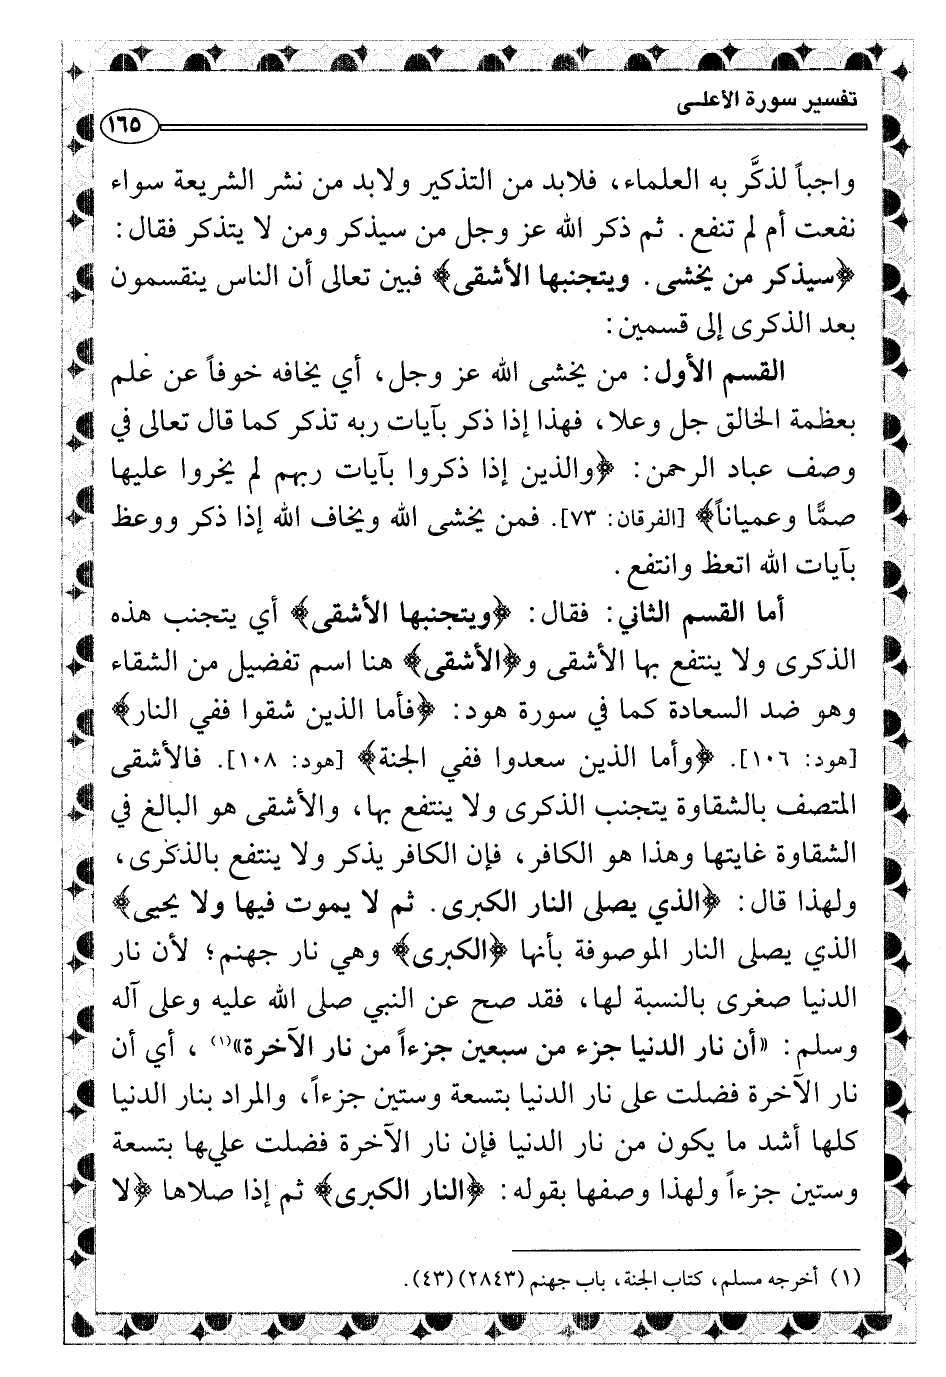 تفسير سورة الأعلى
١٦٥
واجباً لذكَّر به العلماء، فلابد من التذكير ولابد من نشر الشريعة سواء
نفعت أم لم تنفع. ثم ذكر الله عز وجل من سيذكر ومن لا يتذكر فقال:
﴿سيذكر من يخشى. ويتجنبها الأشقى﴾ فبين تعالى أن الناس ينقسمون
بعد الذكرى إلى قسمين:
القسم الأول: من يخشى الله عز وجل، أي يخافه خوفاً عن علم
بعظمة الخالق جل وعلا، فهذا إذا ذكر بآيات ربه تذكر كما قال تعالى في
وصف عباد الرحمن: ﴿والذين إذا ذكروا بآيات ربهم لم يخروا عليها
صمًّا وعمياناً﴾ [الفرقان: ٧٣]. فمن يخشى الله ويخاف الله إذا ذكر ووعظ
بآيات الله اتعظ وانتفع.
أما القسم الثاني: فقال: ﴿ويتجنبها الأشقى﴾ أي يتجنب هذه
الذكرى ولا ينتفع بها الأشقى و﴿الأشقى﴾ هنا اسم تفضيل من الشقاء
وهو ضد السعادة كما في سورة هود: ﴿فأما الذين شقوا ففي النار﴾
[هود: ١٠٦]. ﴿وأما الذين سعدوا ففي الجنة﴾ [هود: ١٠٨]. فالأشقى
المتصف بالشقاوة يتجنب الذكرى ولا ينتفع بها، والأشقى هو البالغ في
الشقاوة غايتها وهذا هو الكافر، فإن الكافر يذكر ولا ينتفع بالذكرى،
ولهذا قال: ﴿الذي يصلى النار الكبرى. ثم لا يموت فيها ولا يحيى﴾
الذي يصلى النار الموصوفة بأنها ﴿الكبرى﴾ وهي نار جهنم؛ لأن نار
الدنيا صغرى بالنسبة لها، فقد صح عن النبي صلى الله عليه وعلى آله
وسلم: «أن نار الدنيا جزء من سبعين جزءاً من نار الآخرة»(١)، أي أن
نار الآخرة فضلت على نار الدنيا بتسعة وستين جزءاً، والمراد بنار الدنيا
كلها أشد ما يكون من نار الدنيا فإن نار الآخرة فضلت عليها بتسعة
وستين جزءاً ولهذا وصفها بقوله: ﴿النار الكبرى﴾ ثم إذا صلاها ﴿لا
(١) أخرجه مسلم، كتاب الجنة، باب جهنم (٢٨٤٣) (٤٣).